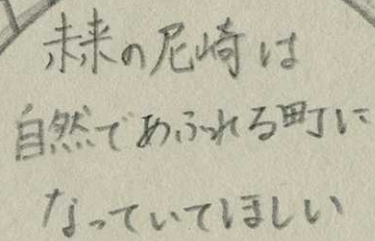 未来の尼崎は
自然であふれる町に
なっていてほしい